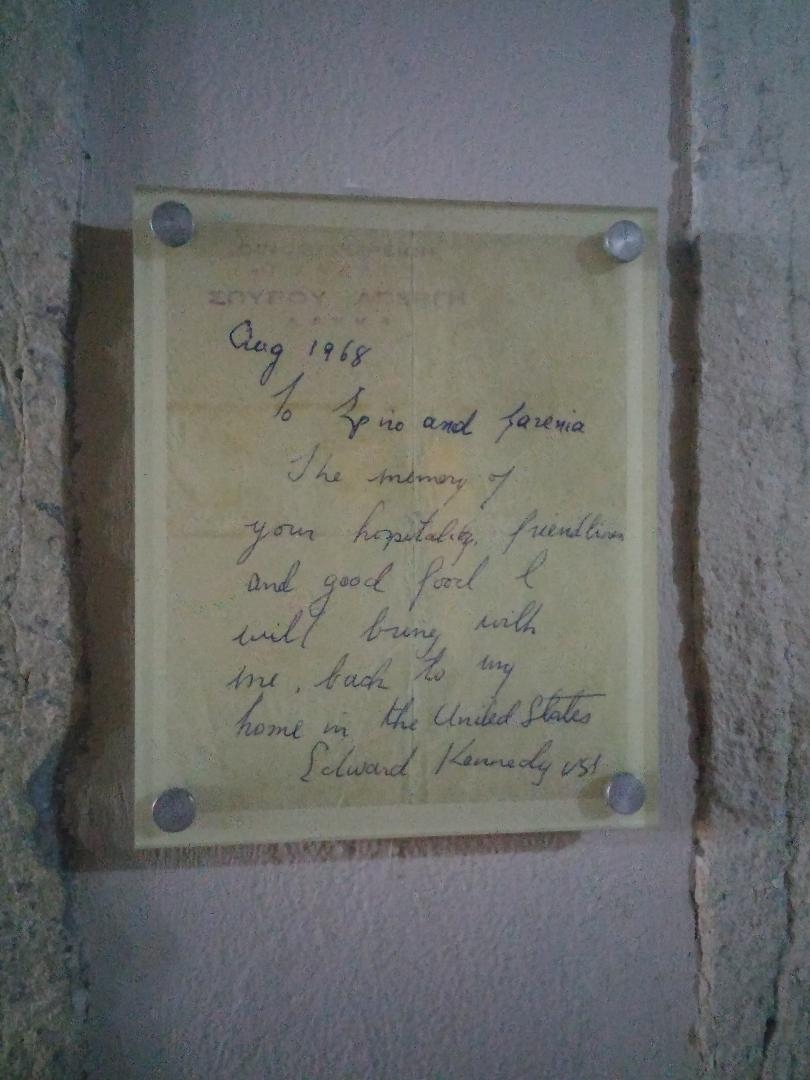 ΣΠΥΡΟΥ
Aug 1968
To Spiro and
The memory of
your hospitality, friendliness
and good food I
will bring with
me, back to my
home in the United States
Edward Kennedy USS